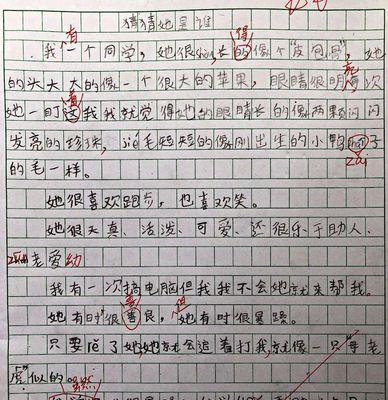 猜猜她是谁
我有一个同学，她很shòu，长得的像个"皮包骨"，她
的头大大的像一个很大的苹果，眼睛很明亮，次
她一盯着我我就觉得她的眼睛长的像两颗闪闪
发亮的珍珠，jié毛短短的像刚出生的小鸭子
zǎi
的毛一样。
她很喜欢跑步，也喜欢笑。
她很天真、活泼、可爱、还很乐于助人、
老爱幼
我有一次搞电脑但我我不会她就来帮我。
她有时很善良，但她有时很暴躁。
只要惹了她她就会追着打我，就像一只老
虎似的。虽然